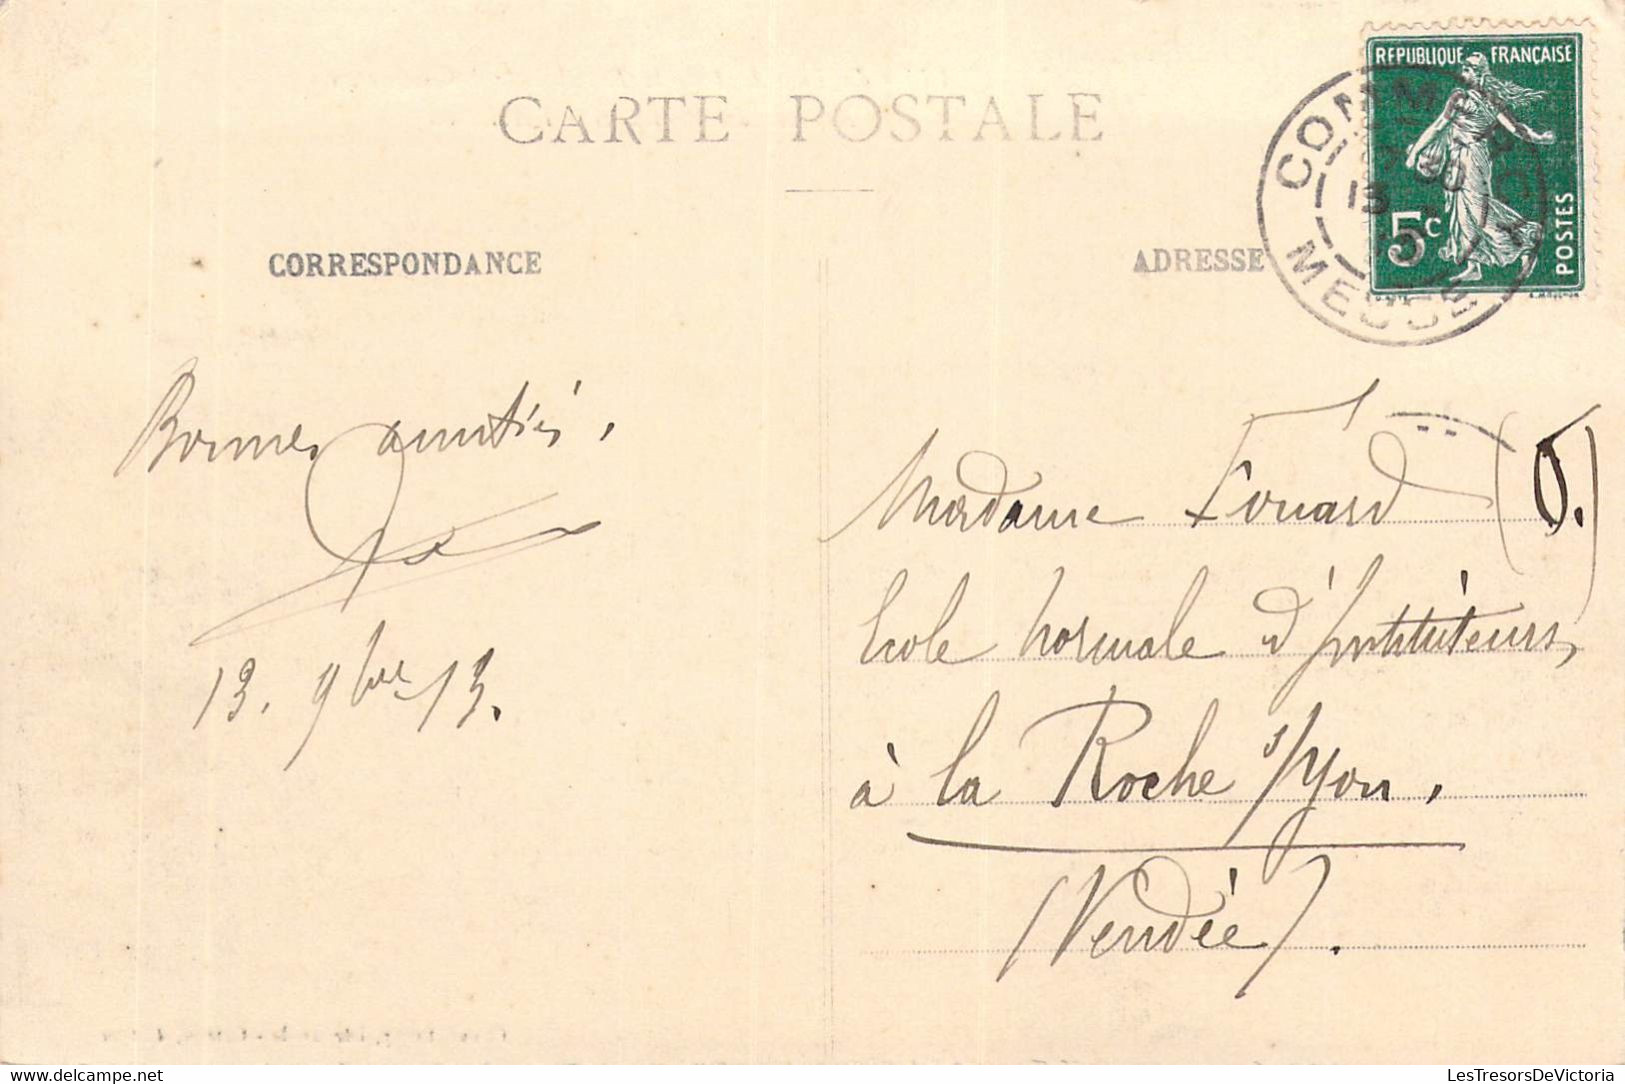 CARTE POSTALE
CORRESPONDANCE
ADRESSE
REPUBLIQUE FRANÇAISE
5c
POSTES
COMMERCY
MEUSE
Bonnes amitiés,
13. 9bre 13.
Madame Fouard
Ecole normale d'Instituteurs,
à la Roche s/Yon.
(Vendée).
LesTresorsDeVictoria
www.delcampe.net